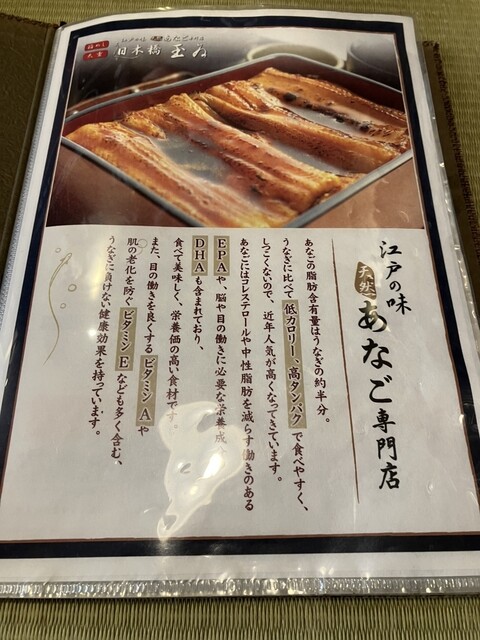 日本橋 玉ゐ
江戸の味
天然 あなご専門店
あなごの脂肪含有量はうなぎの約半分。
うなぎに比べて低カロリー、高タンパクで食べやすく、
しつこくないので、近年人気が高くなってきています。
あなごにはコレステロールや中性脂肪を減らす働きのある
EPAや、脳や目の働きに必要な栄養成
DHAも含まれており、
食べて美味しく、栄養価の高い食材です。
また、目の働きを良くするビタミンAや
肌の老化を防ぐビタミンEなども多く含む、
うなぎに負けない健康効果を持っています。